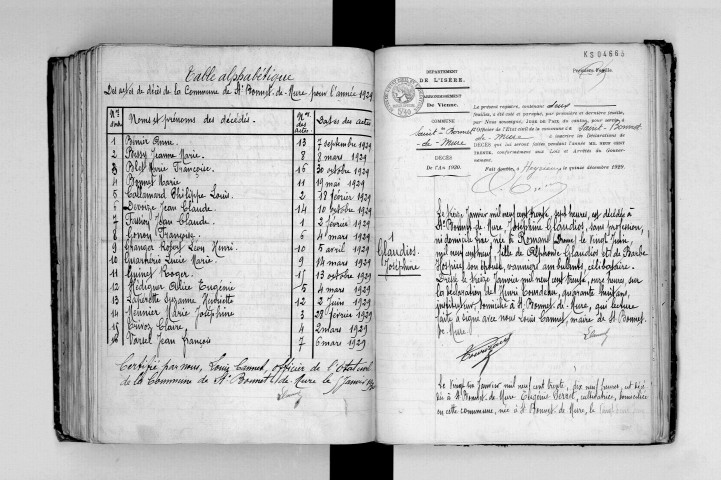 Table alphabétique
Des actes de décès de la Commune de St Bonnet-de-Mure pour l'année 1929
Nos d'ordre Noms et prénoms des décédés. Nos des actes Dates des actes
1 Anne. 13 7 septembre 1929
2 Jeanne Marie. 8 8 mars 1929
3 Marie Françoise. 16 30 octobre 1929
4 Bonnet Marie 11 19 mai 1929
5 Callamard Philippe Louis. 2 18 février 1929
6 Claude. 14 10 octobre 1929
7 Jean Claude. 1 2 février 1929
8 Françoise. 6 4 mars 1929
9 Granger Robert Léon Henri. 10 5 avril 1929
10 Marie. 9 14 mars 1929
11 Guinet Roger. 15 13 octobre 1929
12 Alice Eugénie 5 4 mars 1929
13 Suzanne Henriette 12 2 juin 1929
14 Meunier Marie Joséphine 3 28 février 1929
15 Claire. 4 2 mars 1929
16 Jean François 7 6 mars 1929
Certifié par nous, Louis Cannet, officier de l'état civil
de la Commune de St Bonnet-de-Mure le
KS04665
DÉPARTEMENT
DE L'ISÈRE.
ARRONDISSEMENT
De Vienne.
COMMUNE
Saint-Bonnet
-de-Mure
DÉCÈS
De l'An 1930.
Première Feuille.
Le présent registre, contenant deux
feuilles, a été coté et paraphé, par première et dernière feuille,
par Nous soussigné, Juge de Paix du canton, pour servir à
l'Officier de l'Etat civil de la commune de Saint-Bonnet
-de-Mure à inscrire les Déclarations de
DÉCÈS qui lui seront faites pendant l'année MIL NEUF CENT
TRENTE, conformément aux Lois et Arrêtés du Gouvernement.
Fait double, à Heyrieux le quinze décembre 1929.
1
Glaudios
Joséphine
Le treize Janvier mil neuf cent trente, sept heures, est décédée à
St Bonnet-de-Mure, Joséphine Glaudios, sans profession,
ni domicile fixe, née à Romans (Drôme) le vingt Juin
mil neuf cent neuf, fille de Alphonse Glaudios et de Barbe
son épouse, vanniers ambulants, célibataire.
Dressé le treize Janvier mil neuf cent trente, onze heures, sur
la déclaration de Henri quarante huit ans,
instituteur, domicilié à St Bonnet-de-Mure, qui lecture
faite a signé avec nous Louis Cannet, maire de St Bonnet-
de-Mure.
Le vingt un janvier mil neuf cent trente, dix neuf heures, est décédée
à St Bonnet-de-Mure Eugénie cultivatrice, domiciliée
en cette commune, née à St Bonnet-de-Mure, le